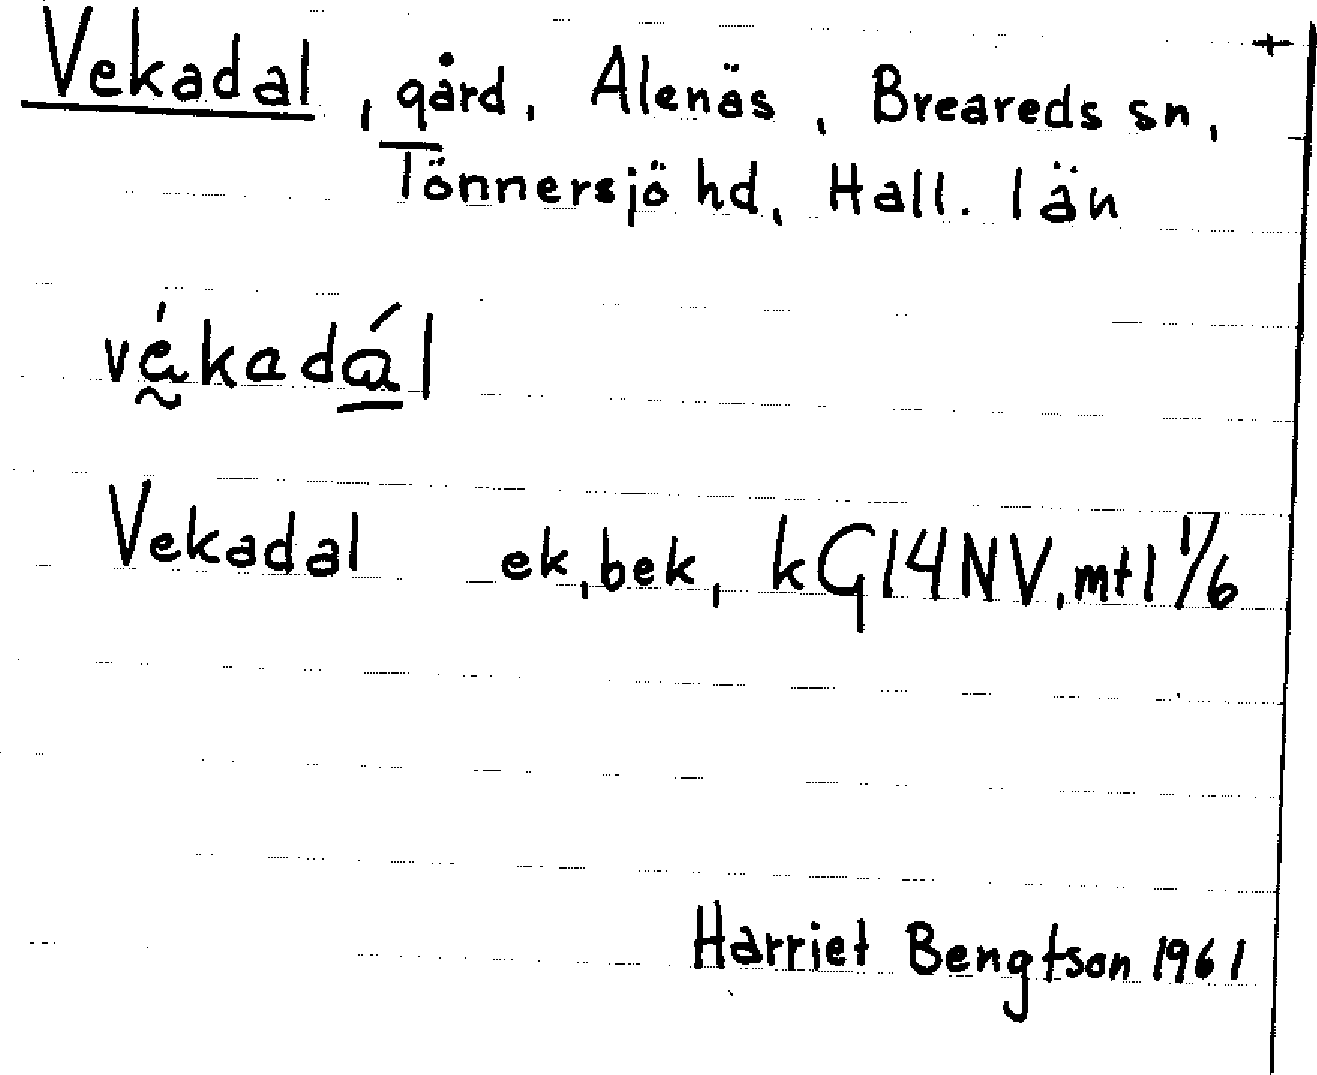 Vekadal, gård, Alenäs, Breareds sn,
Tönnersjö hd, Hall. län
vékadál
Vekadal ek, bek, kG14NV, mtl 1/6
Harriet Bengtson 1961